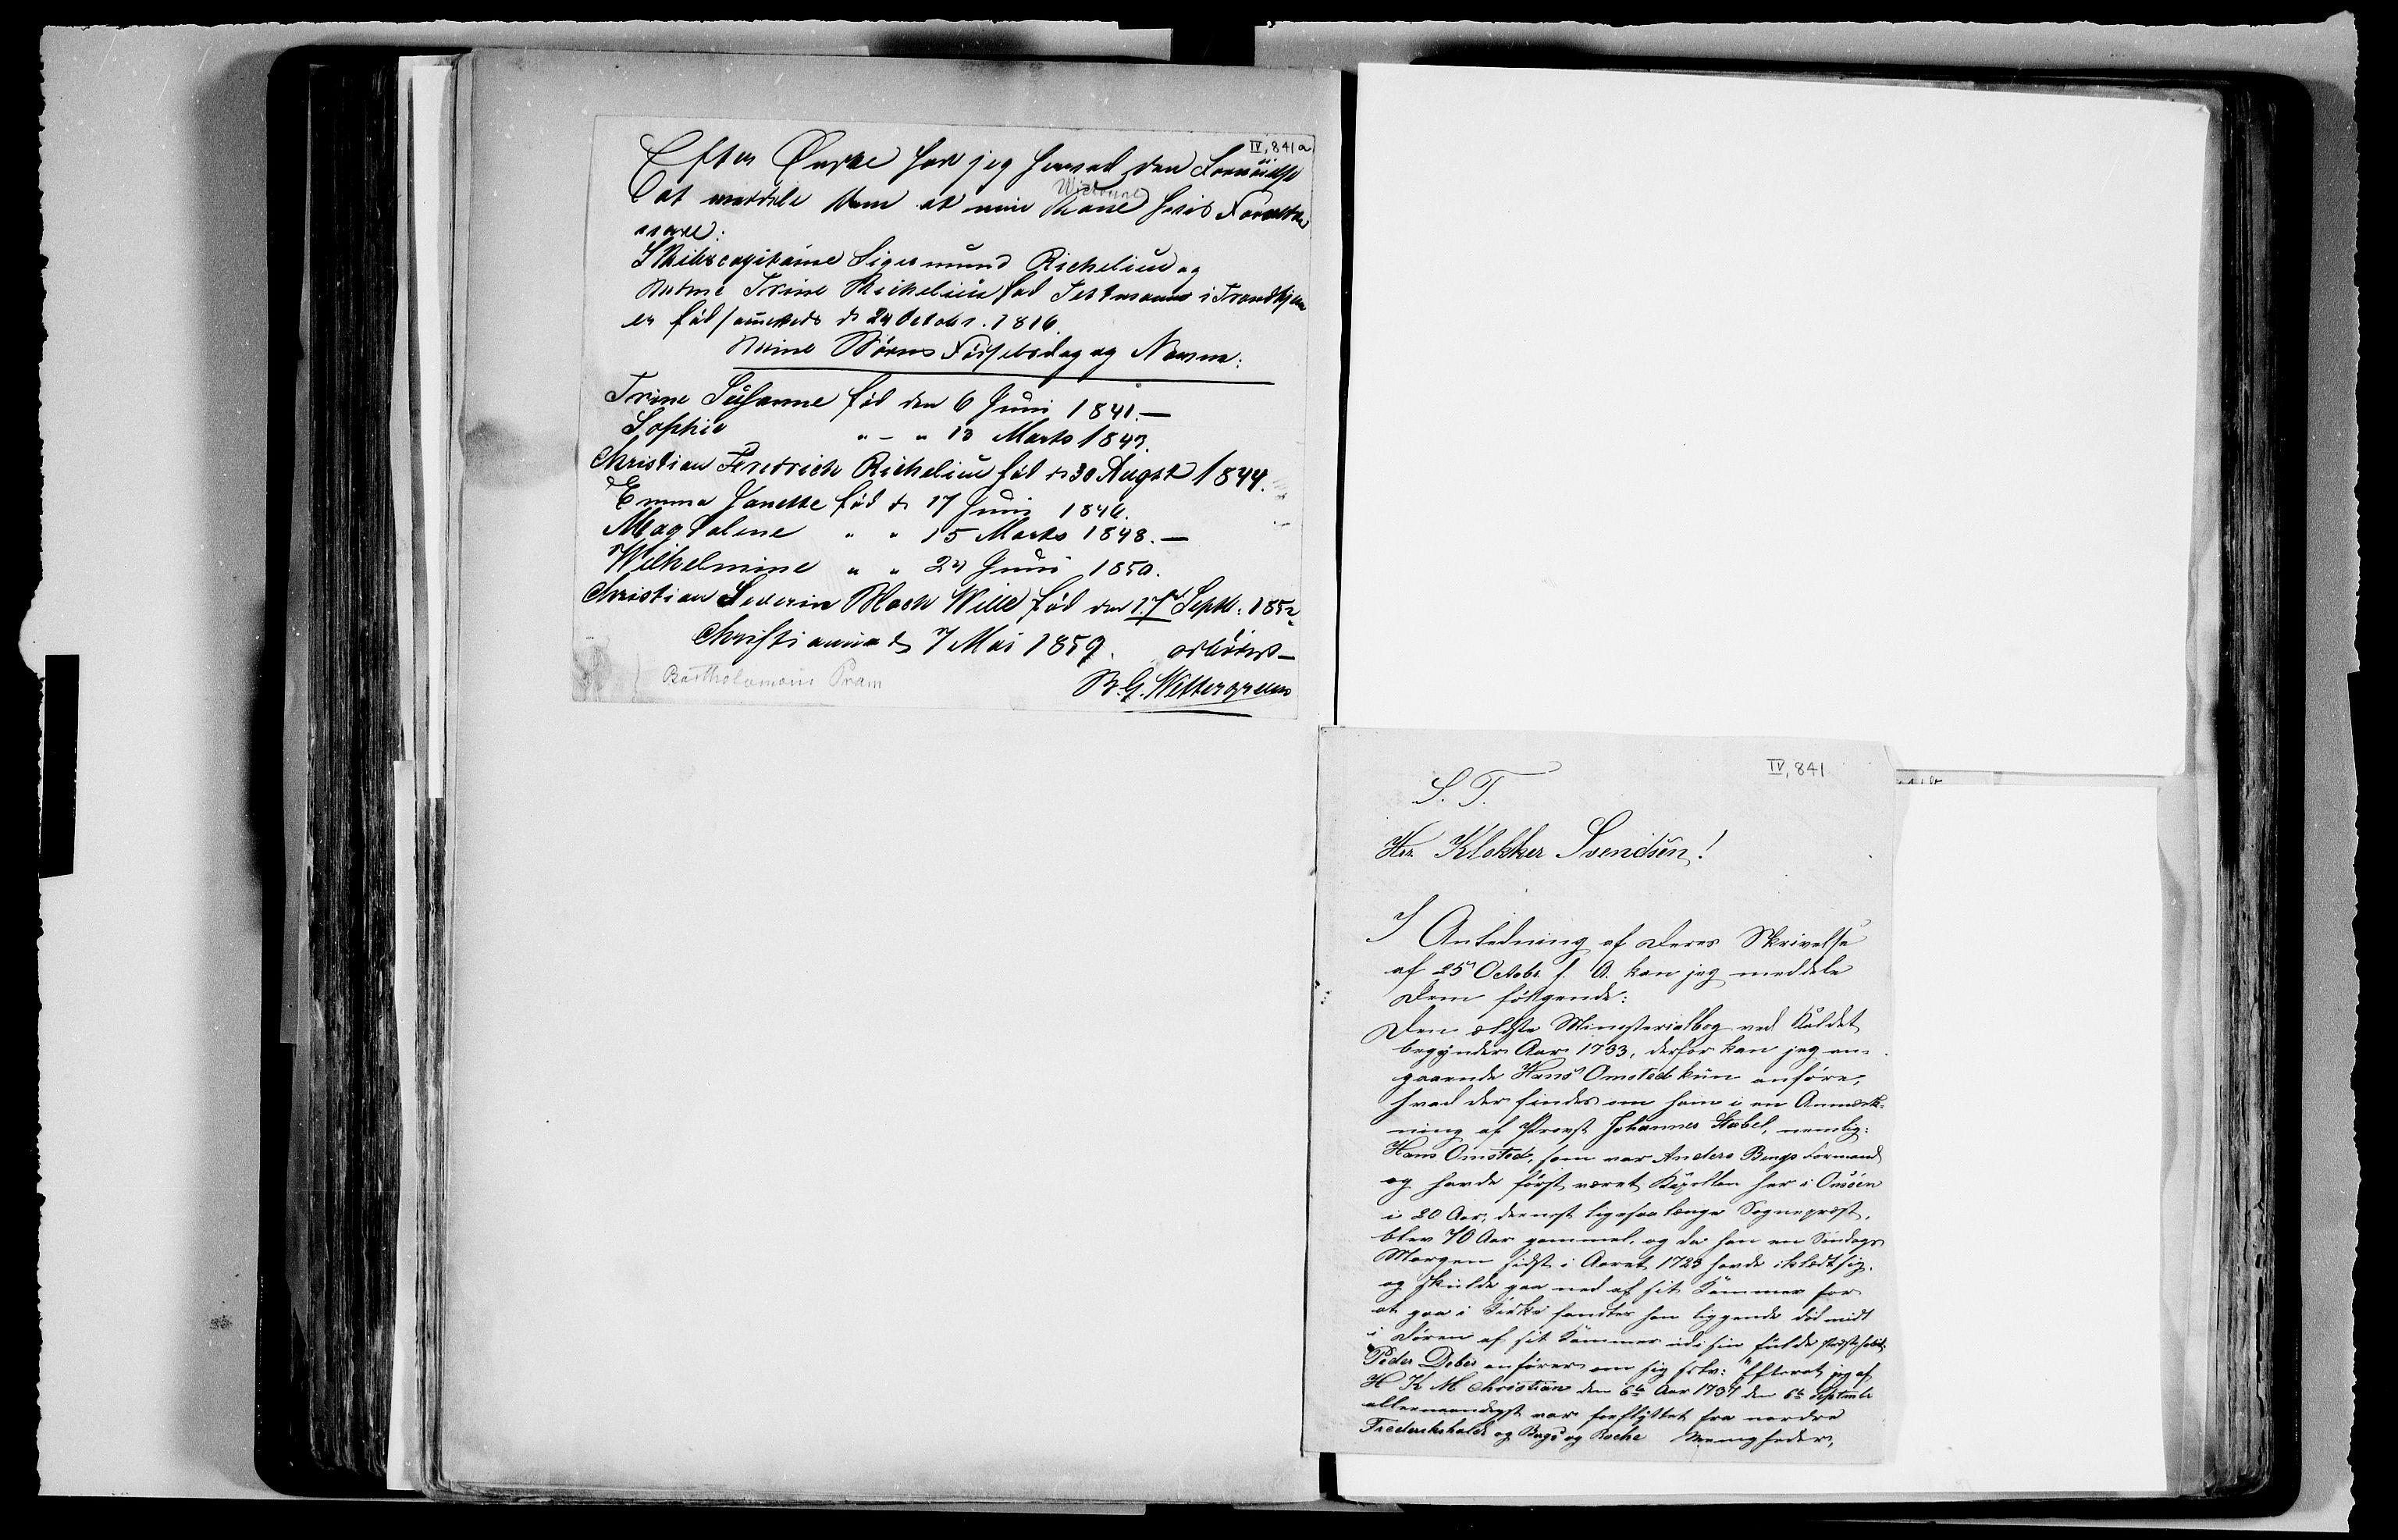 IV, 841a
Efter Ønske har jeg herved den Fornøielse
at meddele Dem at min Kone hvis Forældre
vare:
Skibscapitaine Sigesmund Richelieu og
Trine Richelieu fød Testmann i Trondhjem
er fød sammesteds d 24 Octobr. 1816.
Mine Børns Fødselsdag og Navne:
Trine Susanne fød den 6 Juni 1841.—
Sophie " - " 13 Marts 1843.
Christian Feredrich Richelieu fød d 30 August 1844.
Emma Janette fød d 17 Juni 1846.
Magdalene " " 15 Marts 1848.—
Wilhelmine " " 24 Juni 1850.
Christian Severin Bloch Wille fød den 17 Septb: 1852
Christiania d 7 Mai 1859. ærbødigst—
B. G. Wettergreen
Bartholomæus Pram
IV, 841
S. T.
Hr. Klokker Svendsen!
I Anledning af Deres Skrivelse
af 25 Octobr f. A. kan jeg meddele
Dem følgende:
Den ældste Ministerialbog ved Kaldet
begynder Aar 1733, derfor kan jeg an-
gaaende Hans Omsted kun anføre,
hvad der findes om ham i en Anmærk-
ning af Provst Johannes Stabel, nemlig:
Hans Omsted, som var Anders Bergs Formand
og havde først været Kapellan her i Onsøen
i 20 Aar, dernest ligesaa længe Sognepræst,
blev 70 Aar gammel, og da han en Søndags
Morgen sidst i Aaret 1723 havde iklædt sig,
og skulde gaa ned af sit Kammer for
at gaa i Kirke fandtes han liggende død midt
i Døren af sit Kammer udi sin fulde Præstehabit.
Peder Debes anfører om sig selv: "Efterat jeg af
H K M Christian den 6te Aar 1737 den 6te Septembr
allernaadigst var forflyttet fra nordre
Frederikshalds og Bergs og Rocke Menigheder,